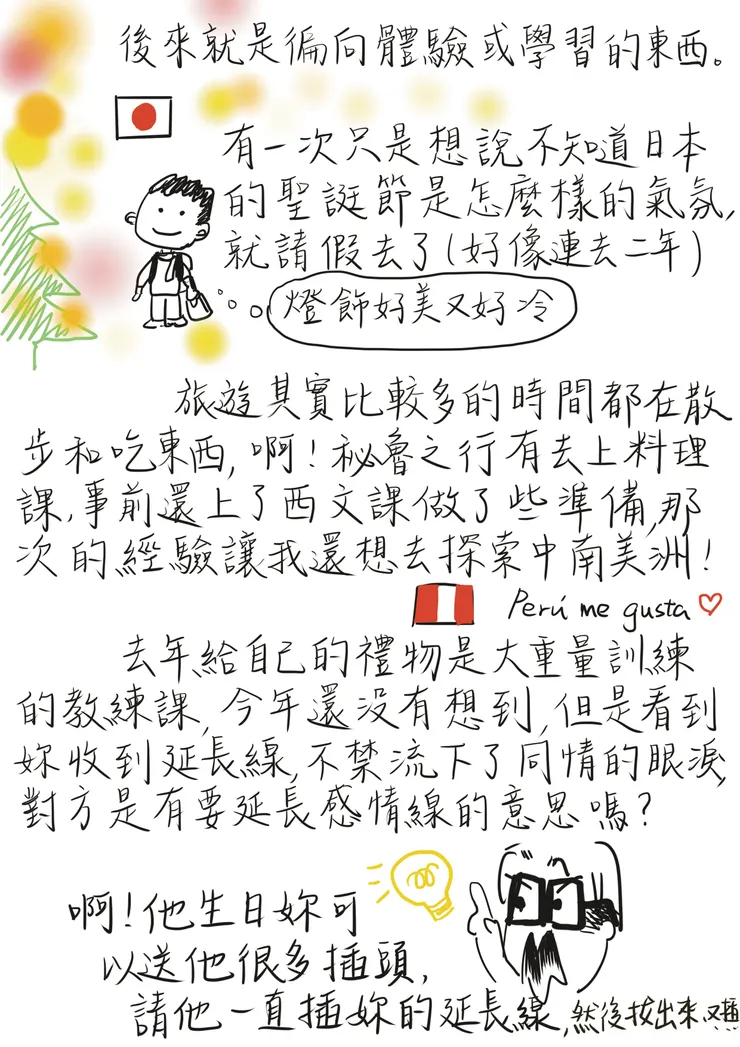 後來就是偏向體驗或學習的東西。
有一次只是想說不知道日本
的聖誕節是怎麼樣的氣氛,
就請假去了(好像連去二年)
燈飾好美又好冷
旅遊其實比較多的時間都在散
步和吃東西,啊!秘魯之行有去上料理
課,事前還上了西文課做了些準備,那
次的經驗讓我還想去探索中南美洲!
Perú me gusta
去年給自己的禮物是大重量訓練
的教練課,今年還沒有想到,但是看到
妳收到延長線,不禁流下了同情的眼淚,
對方是有要延長感情線的意思嗎?
啊!他生日妳可
以送他很多插頭,
請他一直插妳的延長線,然後拔出來又插